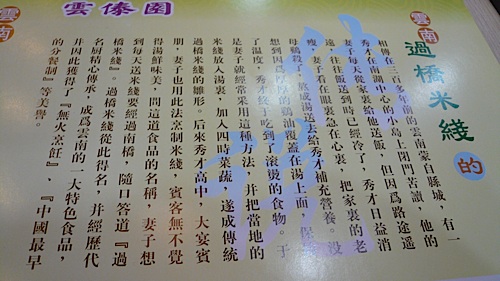 雲南
雲傣園
雲南
過橋米綫
的
傳說
相傳在三百多年前的雲南蒙自縣城，有一
秀才在南湖中心的小島上閉門苦讀，他的
妻子每天從家裏給他送飯，但因爲路途遥
遠，往往飯送到時已經冷了，秀才日益消
瘦，妻子看在眼裏急在心裏，把家裏的老
母鷄殺了，熬成湯送去給秀才補充營養。没
想到因爲厚厚的鷄油覆蓋在湯上面，保持
了温度，秀才終于吃到了滚燙的食物。于
是妻子就經常采用這種方法，并把當地的
米綫放入湯裏，加入四時菜蔬，遂成傳統
過橋米綫的雛形。后來秀才高中，大宴賓
朋，妻子也用此法烹制米綫，賓客無不覺
得湯鮮味美，問這道食品的名稱，妻子想
到每天送米綫要經過南橋，隨口答道『過
橋米綫』。過橋米綫從此得名，并經歷代
名厨精心傳承，成爲雲南的一大特色食品，
并因此獲得了『無火烹飪』、『中國最早
的分餐制』等美譽。